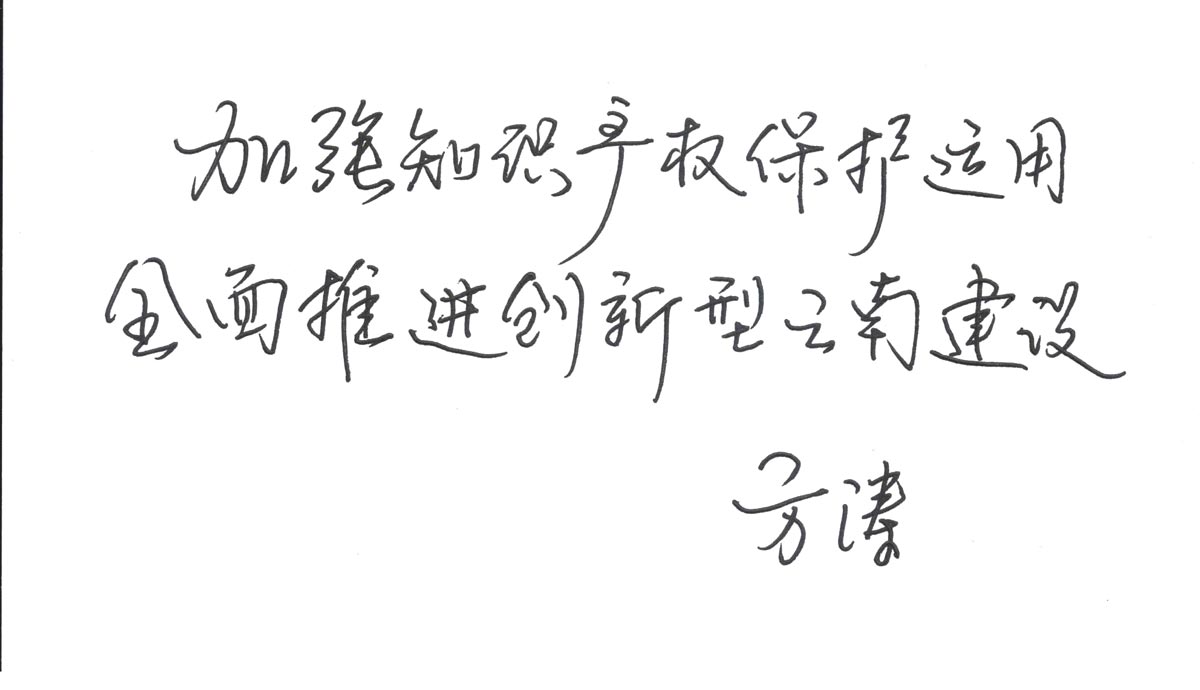 加强知识产权保护运用
全面推进创新型云南建设
方涛